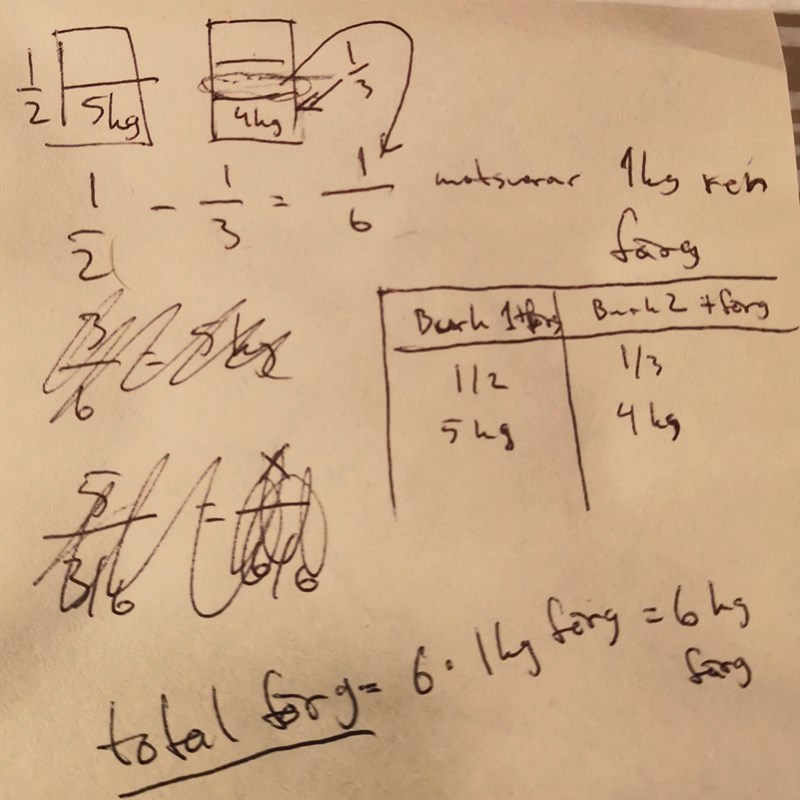 1/2 5kg 4kg 1/3
1/2 - 1/3 = 1/6 motsvarar 1kg ren
färg
Burk 1+färg Burk 2 +färg
1/2 1/3
5 kg 4 kg
total färg = 6 · 1kg färg = 6 kg
färg